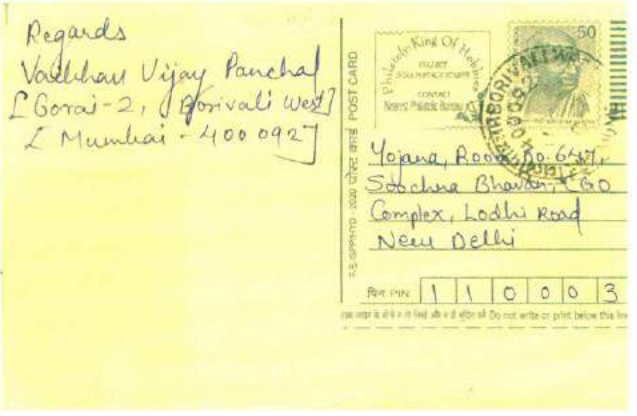 Regards
Vaibhav Vijay Panchal
[Gorai-2, Borivali West]
[Mumbai - 400 092]
Philately King Of Hobbies
COLLECT
CONTACT
Nearest Philatelic Bureau
50
BORIVALI
POST CARD
2020 पोस्ट कार्ड
Yojana, Room No. 647,
Soochna Bhavan, CGO
Complex, Lodhi Road
New Delhi
पिन PIN 1 1 0 0 0 3
Do not write or print below this line